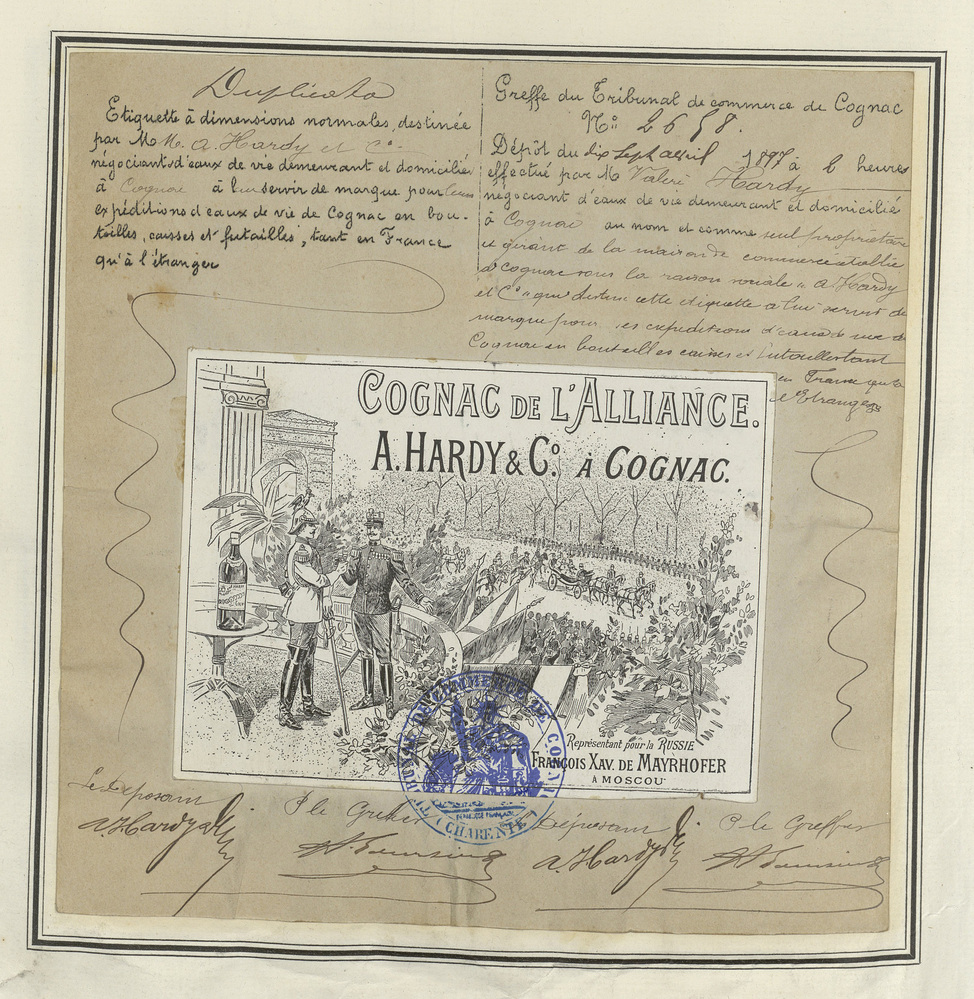 Duplicata
Etiquette à dimensions normales, destinée
par M M. A. Hardy et Cie
négociants d'eaux de vie demeurant et domiciliés
à Cognac à leur servir de marque pour leurs
expéditions d'eaux de vie de Cognac en bou-
teilles, caisses et futailles, tant en France
qu'à l'étranger
Greffe du Tribunal de commerce de Cognac
No: 2658.
Dépôt du dix sept avril 1897 à 2 heures
effectué par M Valéri Hardy
négociant d'eaux de vie demeurant et domicilié
à Cognac au nom et comme seul propriétaire
et gérant de la maison de commerce établie
à Cognac sous la raison sociale "A Hardy
et Co" qui destine cette étiquette à lui servir de
marque pour ses expéditions d'eaux de vie de
Cognac en bouteilles caisses et futailles tant
en France qu'à
l'Etranger
COGNAC DE L'ALLIANCE.
A. HARDY & Co. À COGNAC.
Représentant pour la RUSSIE
FRANÇOIS XAV. DE MAYRHOFER
À MOSCOU
TRIBUNAL DE COMMERCE DE COGNAC
(CHARENTE)
Le Déposant P le Greffier
A. Hardy
Le Déposant P le Greffier
A. Hardy